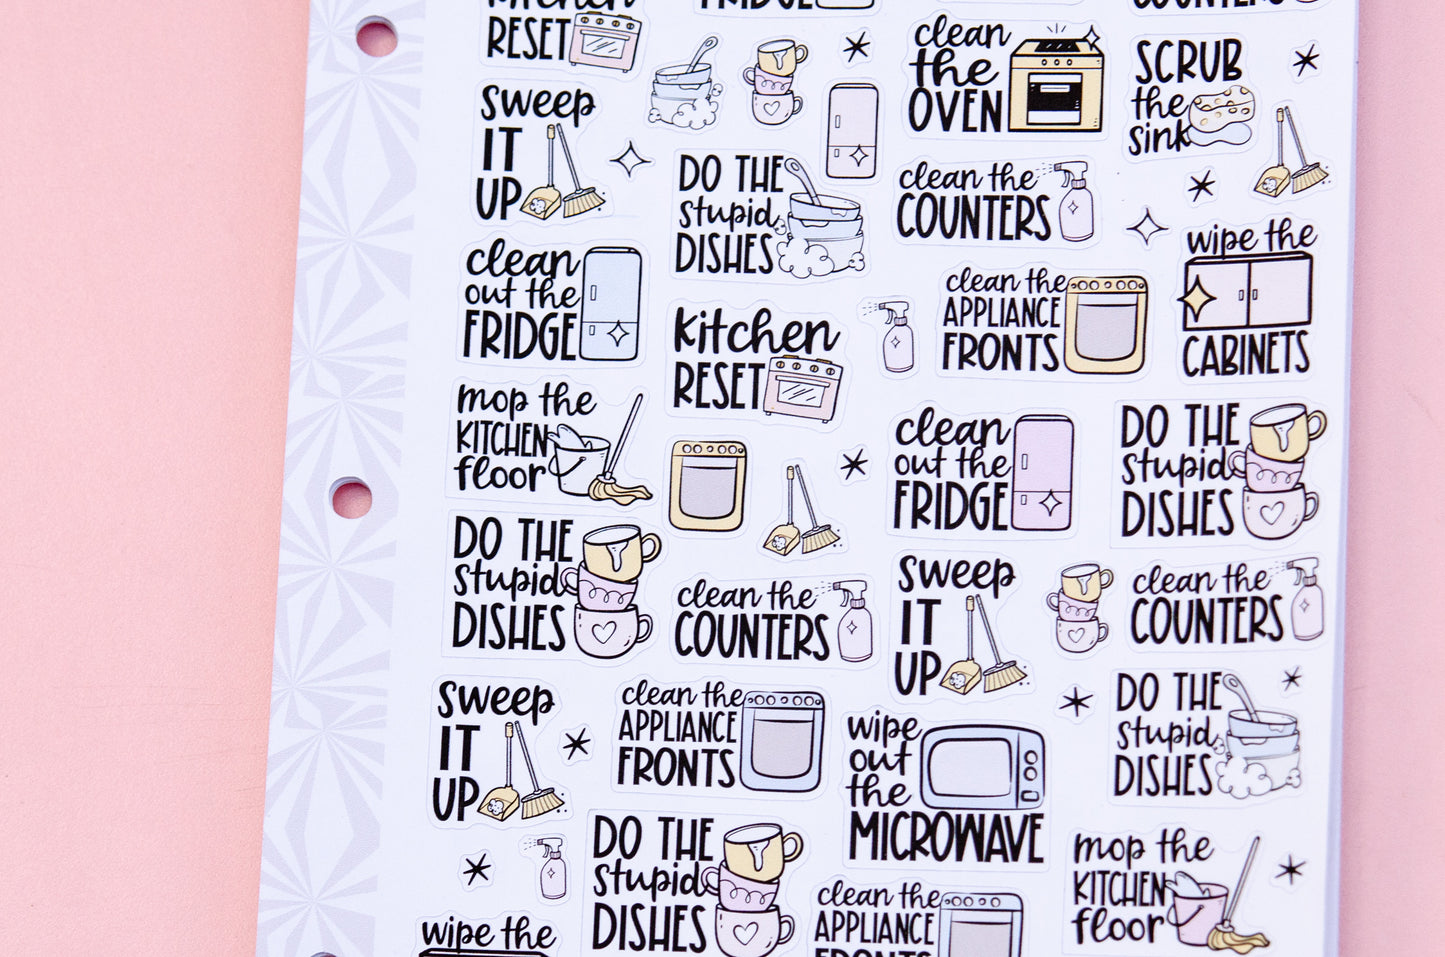 kitchen
RESET
FRIDGE
clean
the
OVEN
COUNTERS
SCRUB
the
sink
sweep
IT
UP
DO THE
stupid
DISHES
clean the
COUNTERS
wipe the
CABINETS
clean
out the
FRIDGE
kitchen
RESET
clean the
APPLIANCE
FRONTS
mop the
KITCHEN
floor
clean
out the
FRIDGE
DO THE
stupid
DISHES
DO THE
stupid
DISHES
clean the
COUNTERS
sweep
IT
UP
clean the
COUNTERS
sweep
IT
UP
clean the
APPLIANCE
FRONTS
wipe
out
the
MICROWAVE
DO THE
stupid
DISHES
DO THE
stupid
DISHES
clean the
APPLIANCE
FRONTS
mop the
KITCHEN
floor
wipe the